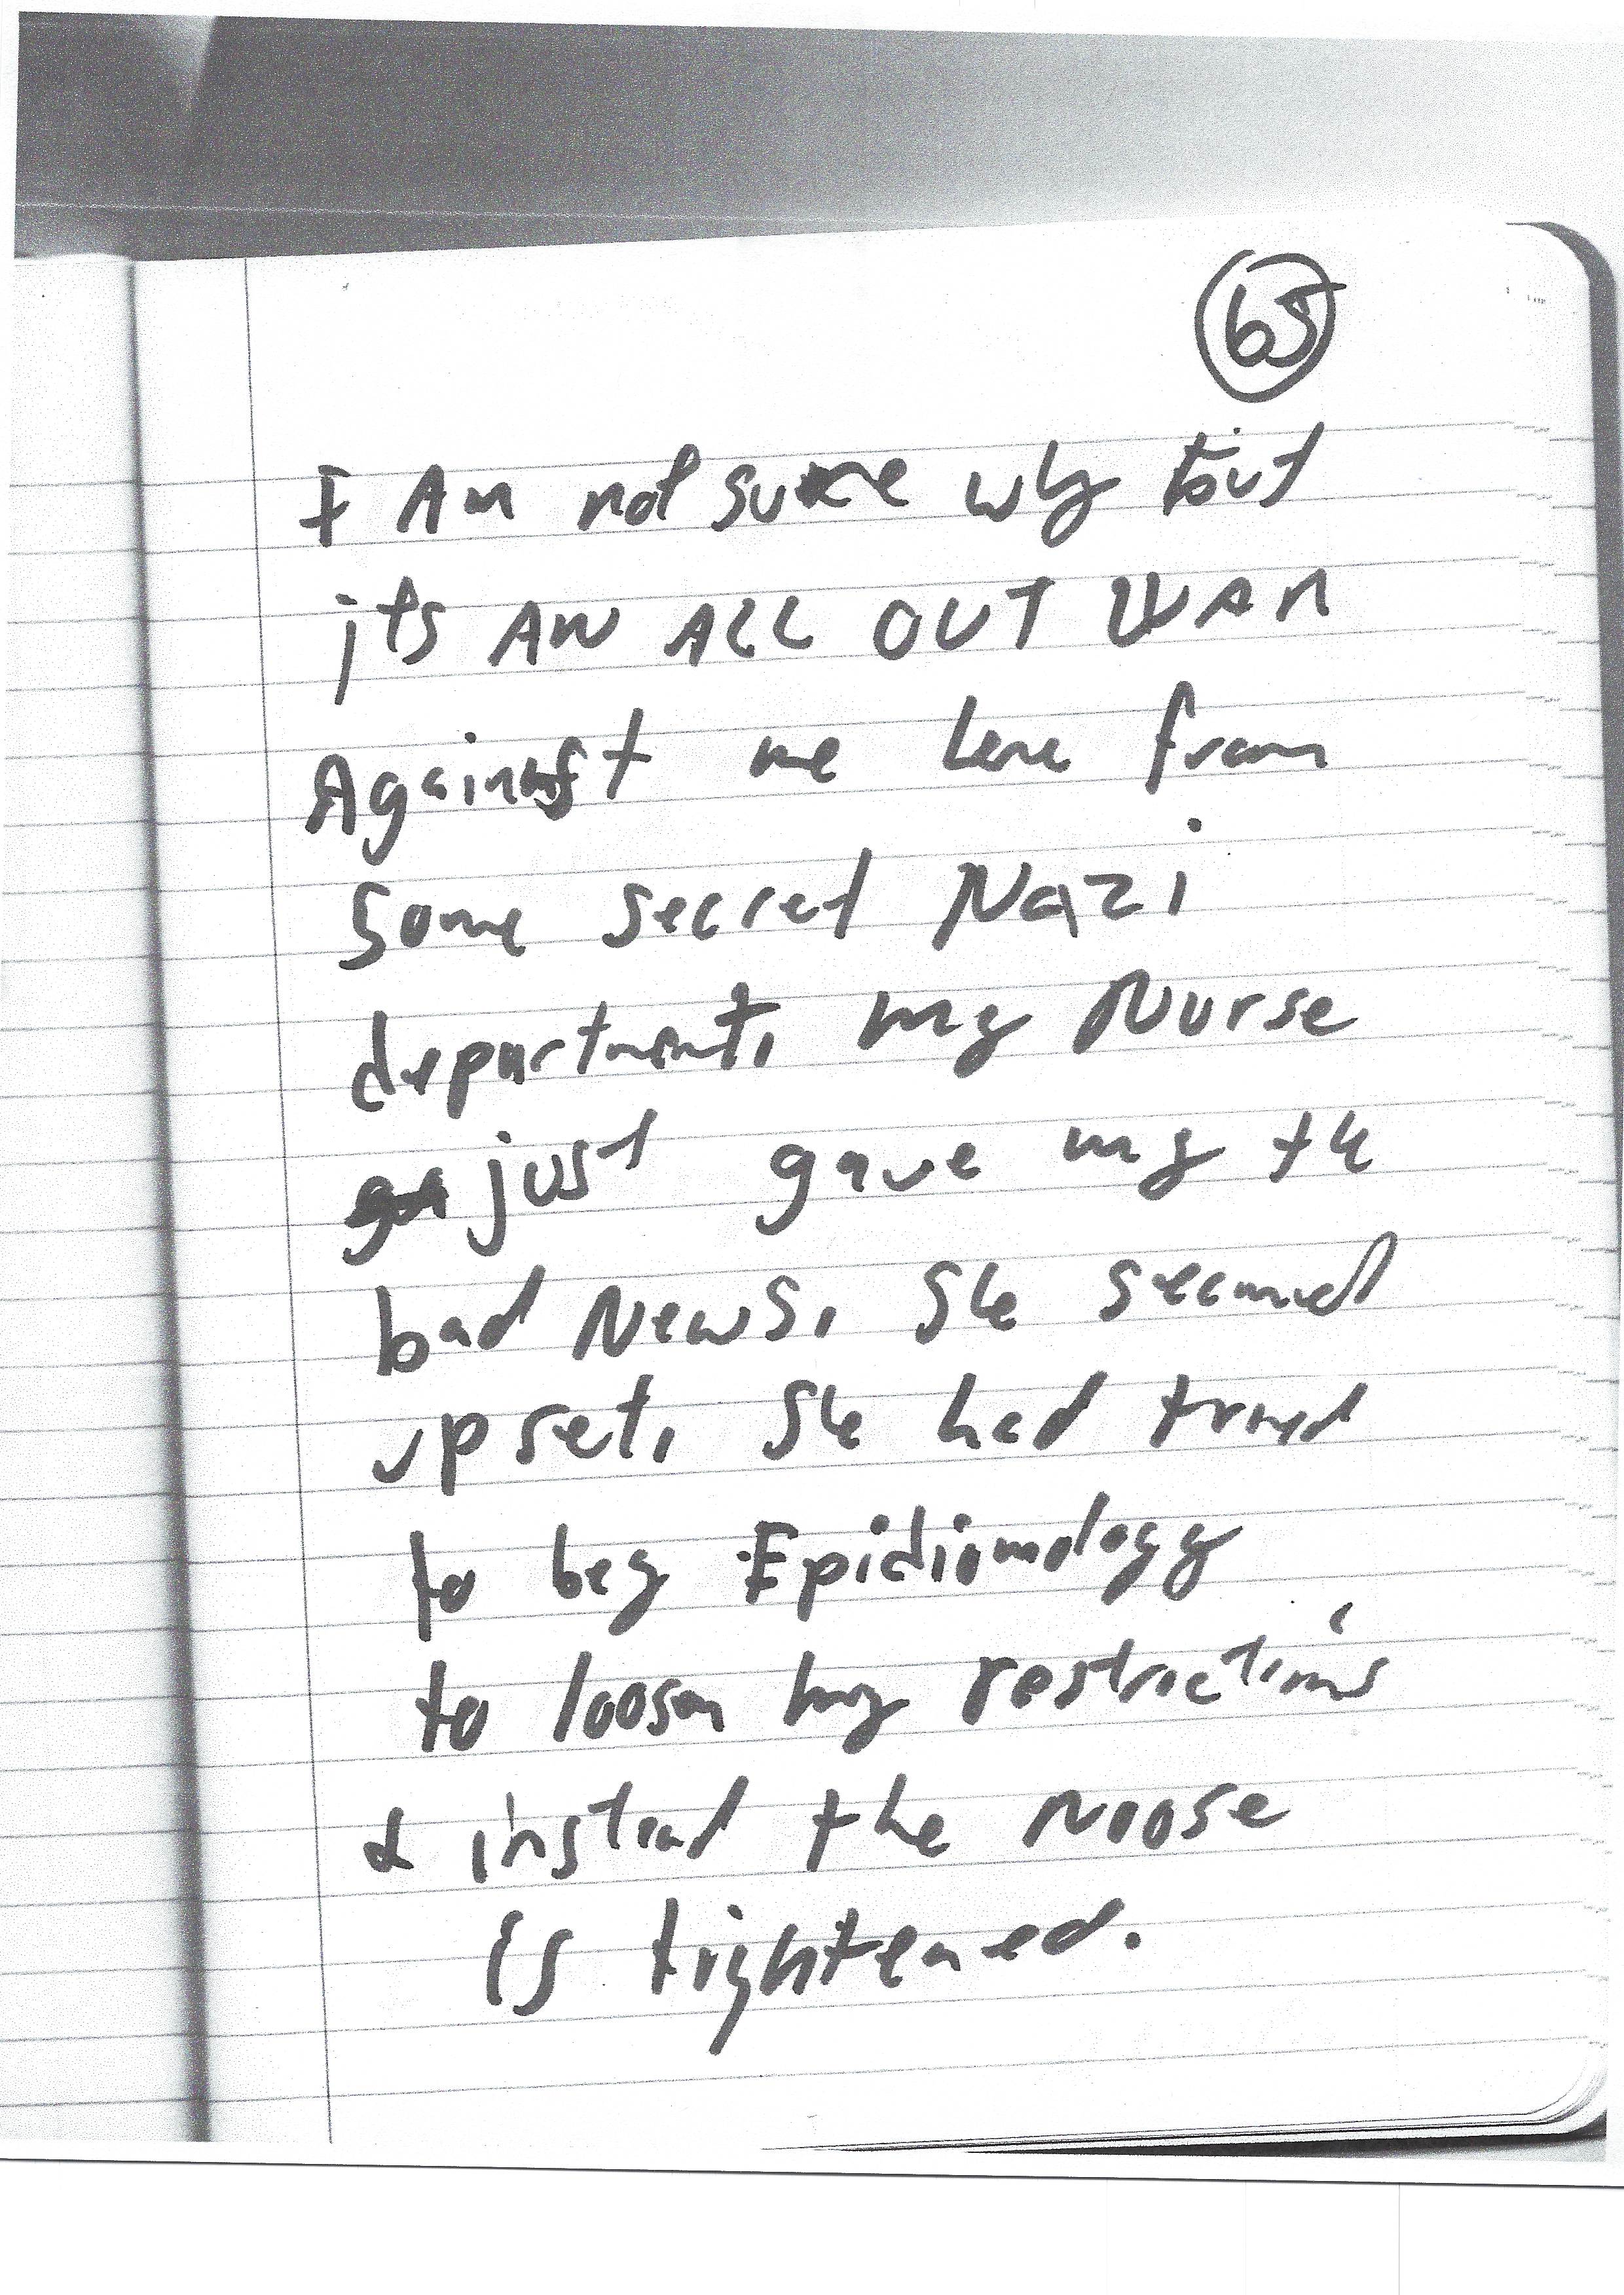 65
I Am not sure why but
its AN ALL OUT WAR
Against me here from
Some secret Nazi
department, my Nurse
just gave my the
bad News, She seemed
upset, She had tried
to beg Epidiomology
to loosen my restrictions
& instead the Noose
is tightened.